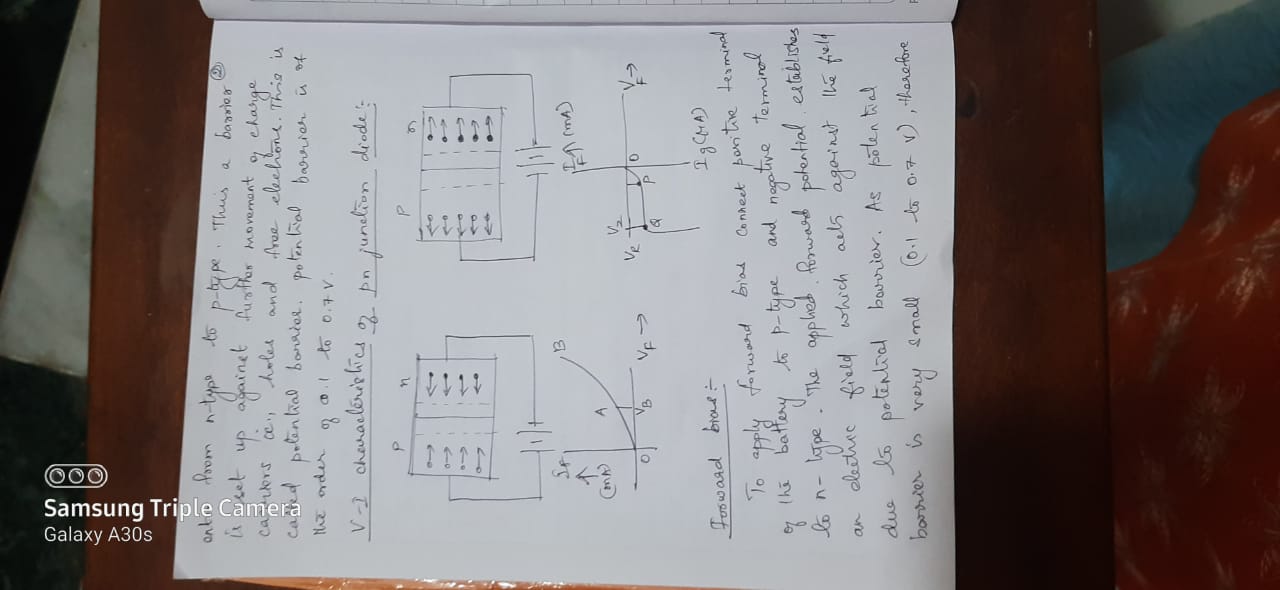 ent from n-type to p-type. This a barrier ②
is set up against further movement of charge
carriers ie., holes and free electrons. This is
called potential barrier. potential barrier is of
the order of 0.1 to 0.7 V.
V-I characteristics of pn junction diode:-
p n
p n
If
(mA)
O
A
B
VB
VF →
IF (mA)
VR
VZ
O
P
Q
VF →
Forward bias:-
To apply forward bias connect positive terminal
of the battery to p-type and negative terminal
to n-type. The applied forward potential establishes
an electric field which acts against the field
due to potential barrier. As potential
barrier is very small (0.1 to 0.7 V), therefore
Samsung Triple Camera
Galaxy A30s